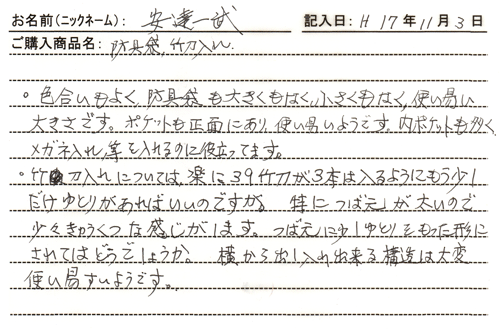 お名前(ニックネーム): 安達一武 記入日: H 17年11月3日
ご購入商品名: 防具袋, 竹刀入れ
。色合いもよく, 防具袋も大きくもなく, 小さくもなく, 使い易い
大きさです。ポケットも正面にあり, 使い易いようです。内ポケットも多く,
メガネ入れ等を入れるのに役立ってます。
。竹刀入れについては, 楽に, 39竹刀が3本は入るようにもう少し
だけゆとりがあればいいのですが。特につば元が太いので
少々きゅうくつな感じがします。つば元に少しゆとりをもった形に
されてはどうでしょうか。横から出し入れ出来る構造は大変
使い易すいようです。